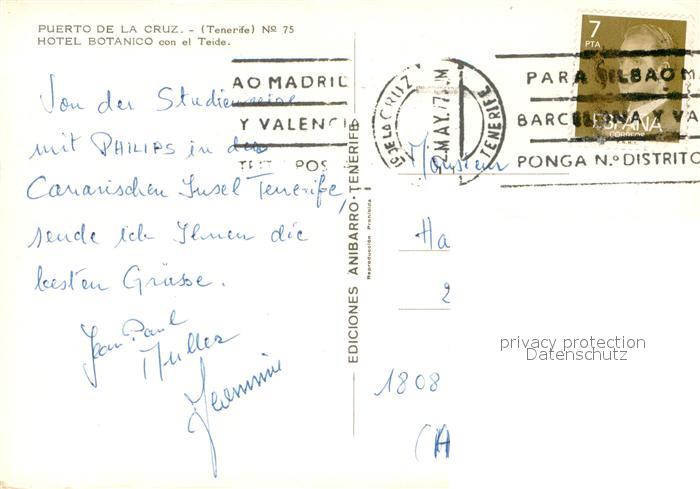 PUERTO DE LA CRUZ. - (Tenerife) Nº 75
HOTEL BOTANICO con el Teide.
Von der Studienreise
mit PHILIPS in der
Canarischen Insel Teneriffe,
sende ich Ihnen die
besten Grüsse.
Jean-Paul
Muller
EDICIONES ANIBARRO-TENERIFE
Reproducción Prohibida
AO MADRID
Y VALENCI
POS
Pº DE LA CRUZ
2 MAY. 77
TENERIFE
7
PTA
ESPAÑA
CORREOS
PARA BILBAO M
BARCELONA Y VA
PONGA N.º DISTRITO
Monsieur
Ha
2
1808
privacy protection
Datenschutz